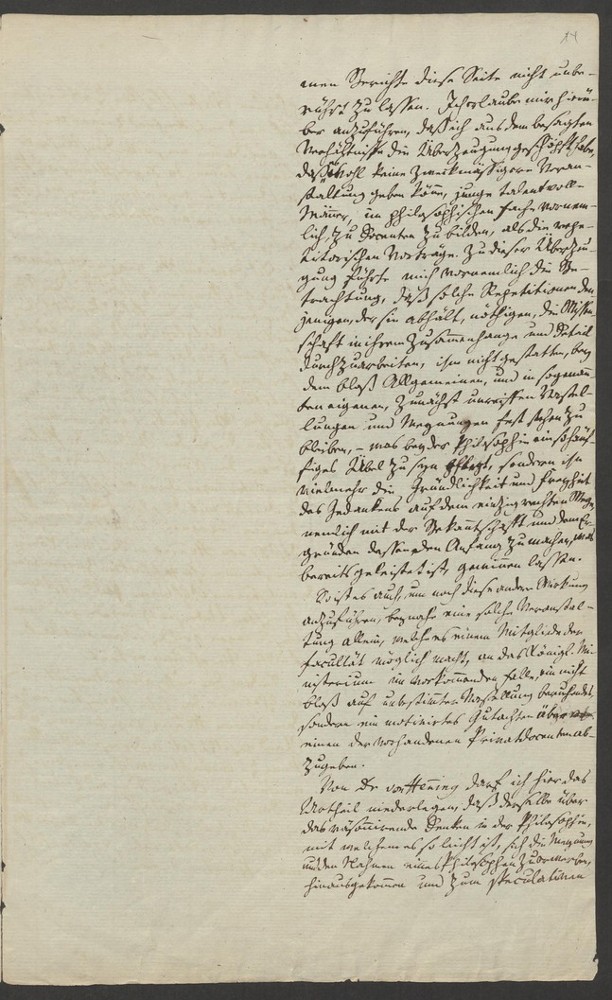 14
nen Berichte diese Seite nicht unbe-
rührt zu lassen. Ich erlaube mir hierü-
ber anzuführen, daß ich aus dem besagten
Verhältnisse die Überzeugung geschöpft habe,
daß es wohl keine zweckmässigere Veran-
staltung geben könne, junge talentvolle
Männer, im philosophischen Fache vornem-
lich, zu Docenten zu bilden, als die repe-
titorischen Vorträge. Zu dieser Überzeu-
gung führte mich vornemlich die Be-
trachtung, daß solche Repetitionen den-
jenigen, der sie abhält, nöthigen, die Wissen-
schaft in ihrem Zusammenhange und Detail
durchzuarbeiten, ihm nicht gestatten, bey
dem bloß Allgemeinen, und in sogenann-
ten eigenen, zunächst unreiffen Vorstel-
lungen und Meynungen fest stehen zu
bleiben, – was bey der Philosophie ein häuf-
figes Übel zu seyn pflegt, sondern ihn
vielmehr die Gründlichkeit und Freyheit
des Gedankens auf dem einzig rechten Wege,
nemlich mit der Bekanntschafft und dem Er-
gründen dessen den Anfang zu machen, was
bereits geleistet ist, gewinnen lassen.
So ist es auch, um noch diese andere Wirkung
anzuführen, beynahe eine solche Veranstal-
tung allein, welche es einem Mitgliede der
Facultät möglich macht, an das Königl. Mi-
nisterium im vorkommenden Falle, ein nicht
bloß auf unbestimter Vorstellung beruhendes,
sondern ein motivirtes Gutachten über
einen der vorhandenen Privatdocenten ab-
zugeben.
Von Dr von Henning darf ich hier das
Urtheil niederlegen, daß derselbe über
das räsonnirende Denken in der Philosophie,
mit welchem es so leicht ist, sich die Meynung
und den Nahmen eines Philosophen zu erwerben,
hinausgekommen und zum speculativen